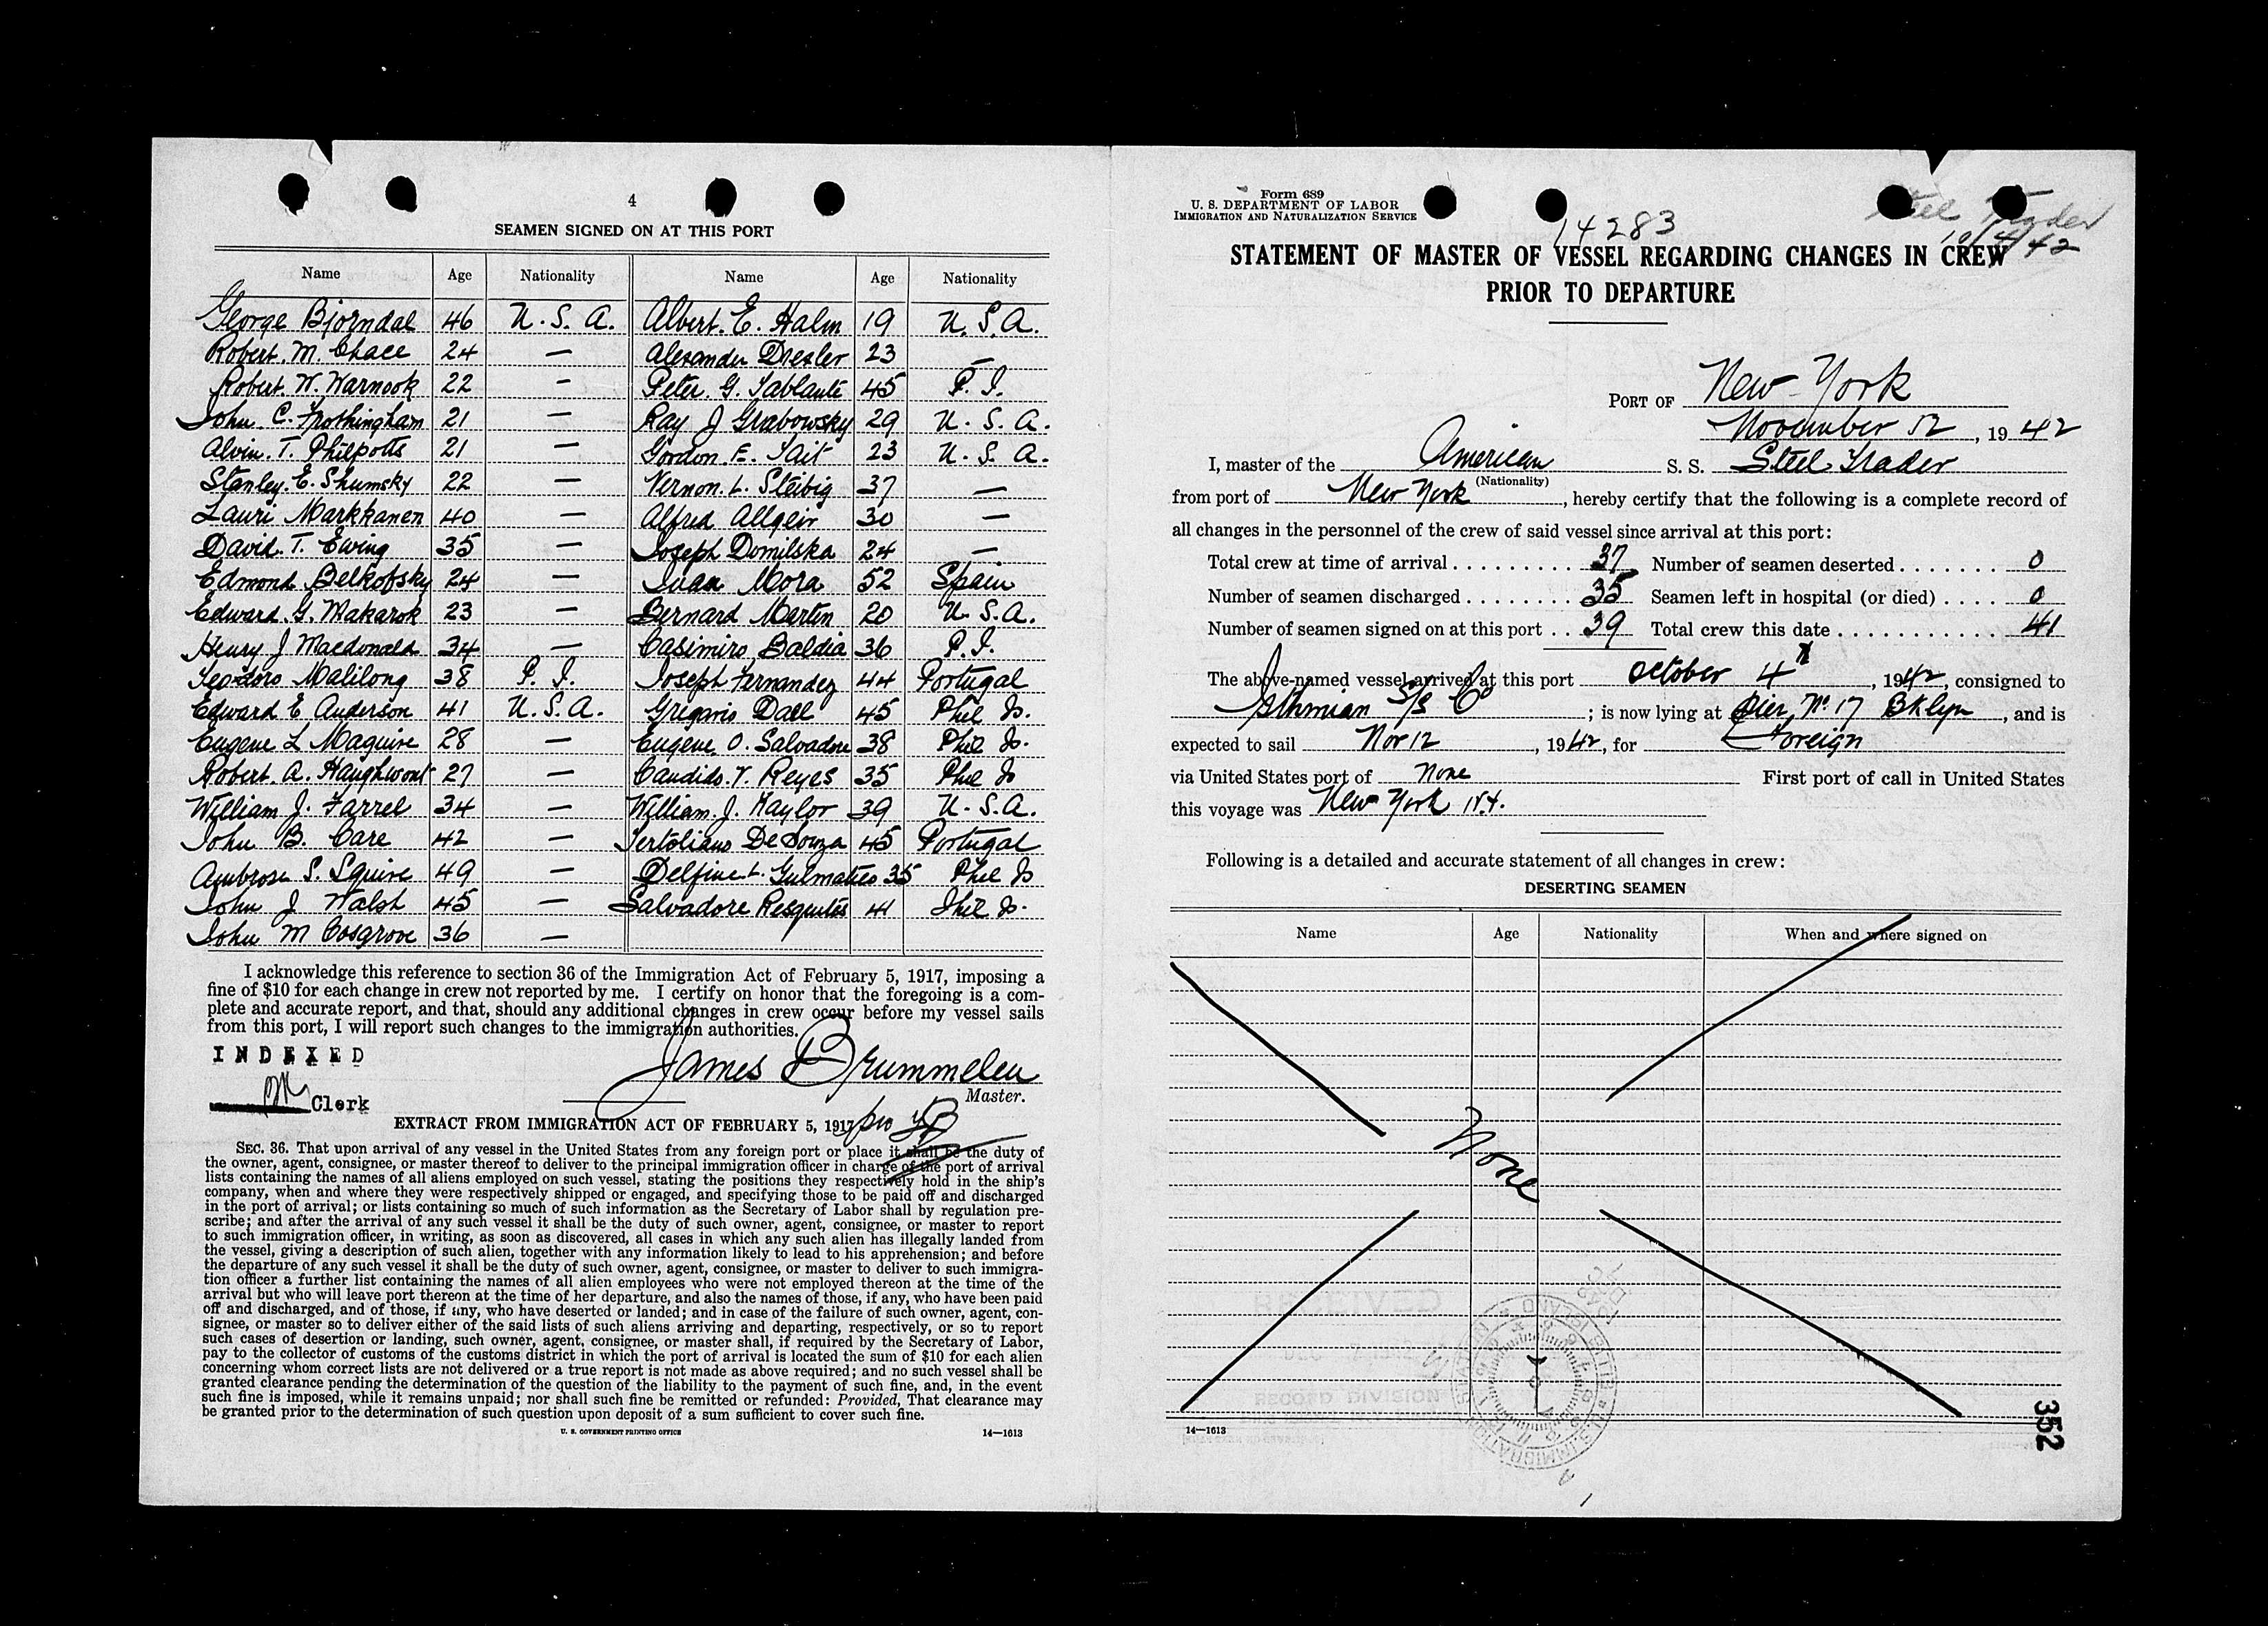 4
SEAMEN SIGNED ON AT THIS PORT
Name Age Nationality Name Age Nationality
George Bjorndal 46 U.S.A. Albert. E. Halm 19 U.S.A.
Robert. M. Chace 24 — Alexander Dresler 23 —
Robert. W. Warnock 22 — Peter. G. 45 P.I.
John. C. Frothingham 21 — Ray J Grabowsky 29 U.S.A.
Alvin. T. Philpotts 21 — Gordon. E. Tait 23 U.S.A.
Stanley. E. Shumsky 22 — Vernon. L. Sleibig 37 —
Lauri Markkanen 40 — Alfred Allgeir 30 —
David. T. Ewing 35 — Joseph Domilska 24 —
Edmond Belkofsky 24 — Juan Mora 52 Spain
Edward. G. Makarok 23 — Bernard Martin 20 U.S.A.
Henry J Macdonald 34 — Casimiro Baldia 36 P.I.
Teodoro Malilong 38 P.I. Joseph Fernandez 44 Portugal
Edward E Anderson 41 U.S.A. Gregorio Dael 45 Phil Is.
Eugene L Maguire 28 — Eugene O. Salvadore 38 Phil Is.
Robert. A. Haughwout 27 — Candido. V. Reyes 35 Phil Is
William J. Farrel 34 — William. J. Taylor 39 U.S.A.
John B. Care 42 — De Souza 45 Portugal
Ambrose S. Squire 49 — Delfine L. Gulmatico 35 Phil Is
John J Walsh 45 — Salvadore Resquites 41 Phil Is.
John M Cosgrove 36 —
I acknowledge this reference to section 36 of the Immigration Act of February 5, 1917, imposing a
fine of $10 for each change in crew not reported by me. I certify on honor that the foregoing is a com-
plete and accurate report, and that, should any additional changes in crew occur before my vessel sails
from this port, I will report such changes to the immigration authorities.
INDEXED
James Brummelen
Master.
Clerk
EXTRACT FROM IMMIGRATION ACT OF FEBRUARY 5, 1917
SEC. 36. That upon arrival of any vessel in the United States from any foreign port or place it shall be the duty of
the owner, agent, consignee, or master thereof to deliver to the principal immigration officer in charge of the port of arrival
lists containing the names of all aliens employed on such vessel, stating the positions they respectively hold in the ship's
company, when and where they were respectively shipped or engaged, and specifying those to be paid off and discharged
in the port of arrival; or lists containing so much of such information as the Secretary of Labor shall by regulation pre-
scribe; and after the arrival of any such vessel it shall be the duty of such owner, agent, consignee, or master to report
to such immigration officer, in writing, as soon as discovered, all cases in which any such alien has illegally landed from
the vessel, giving a description of such alien, together with any information likely to lead to his apprehension; and before
the departure of any such vessel it shall be the duty of such owner, agent, consignee, or master to deliver to such immigra-
tion officer a further list containing the names of all alien employees who were not employed thereon at the time of the
arrival but who will leave port thereon at the time of her departure, and also the names of those, if any, who have been paid
off and discharged, and of those, if any, who have deserted or landed; and in case of the failure of such owner, agent, con-
signee, or master so to deliver either of the said lists of such aliens arriving and departing, respectively, or so to report
such cases of desertion or landing, such owner, agent, consignee, or master shall, if required by the Secretary of Labor,
pay to the collector of customs of the customs district in which the port of arrival is located the sum of $10 for each alien
concerning whom correct lists are not delivered or a true report is not made as above required; and no such vessel shall be
granted clearance pending the determination of the question of the liability to the payment of such fine, and, in the event
such fine is imposed, while it remains unpaid; nor shall such fine be remitted or refunded: Provided, That clearance may
be granted prior to the determination of such question upon deposit of a sum sufficient to cover such fine.
U. S. GOVERNMENT PRINTING OFFICE 14—1613
Form 689
U. S. DEPARTMENT OF LABOR
IMMIGRATION AND NATURALIZATION SERVICE
14283
Steel Trader
10/4/42
STATEMENT OF MASTER OF VESSEL REGARDING CHANGES IN CREW
PRIOR TO DEPARTURE
PORT OF New York
November 12, 1942
I, master of the American S. S. Steel Trader
(Nationality)
from port of New York, hereby certify that the following is a complete record of
all changes in the personnel of the crew of said vessel since arrival at this port:
Total crew at time of arrival 37 Number of seamen deserted 0
Number of seamen discharged 35 Seamen left in hospital (or died) 0
Number of seamen signed on at this port 39 Total crew this date 41
The above-named vessel arrived at this port October 4th, 1942, consigned to
Isthmian S/S Co; is now lying at Pier No 17 Bklyn, and is
expected to sail Nov 12, 1942, for Foreign
via United States port of None First port of call in United States
this voyage was New York N.Y.
Following is a detailed and accurate statement of all changes in crew:
DESERTING SEAMEN
Name Age Nationality When and where signed on
None
RECEIVED
RECORD DIVISION
14—1613
352